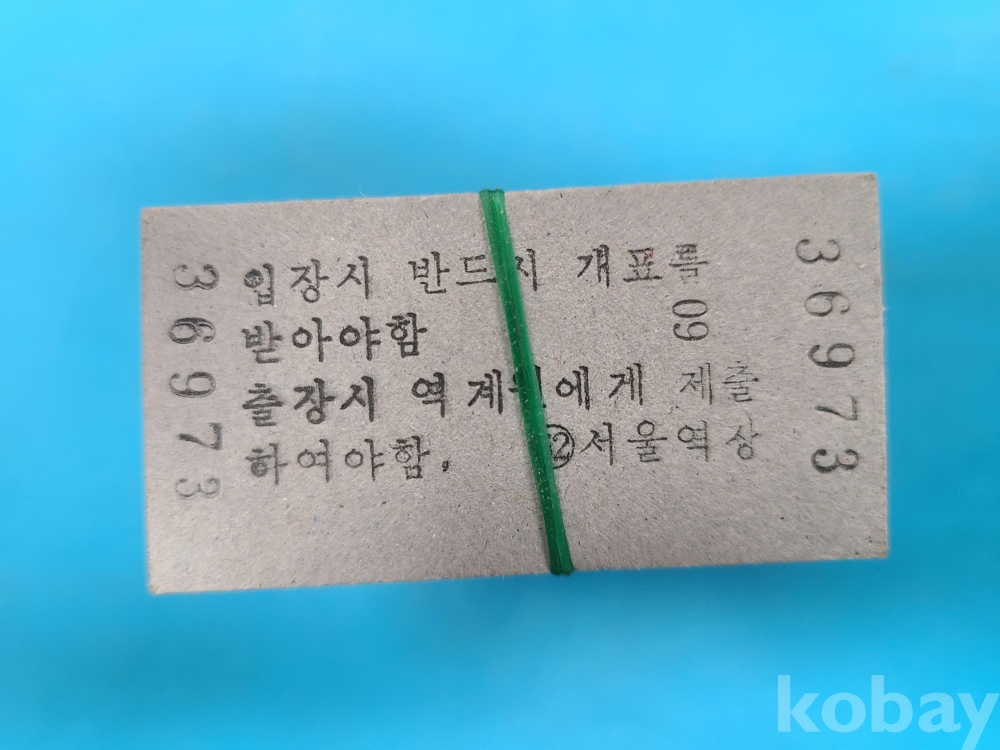 입장시 반드시 개표를
받아야함
출장시 역계원에게 제출
하여야함. ②서울역상
09
36973
36973
kobay